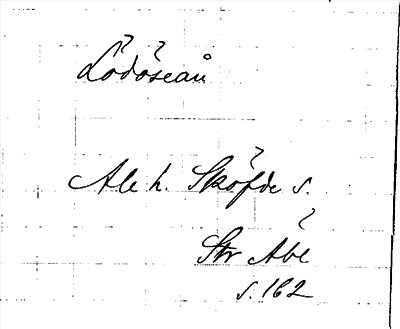 Lödöseån
Ale h. Sköfde s.
Str Abl
s. 162